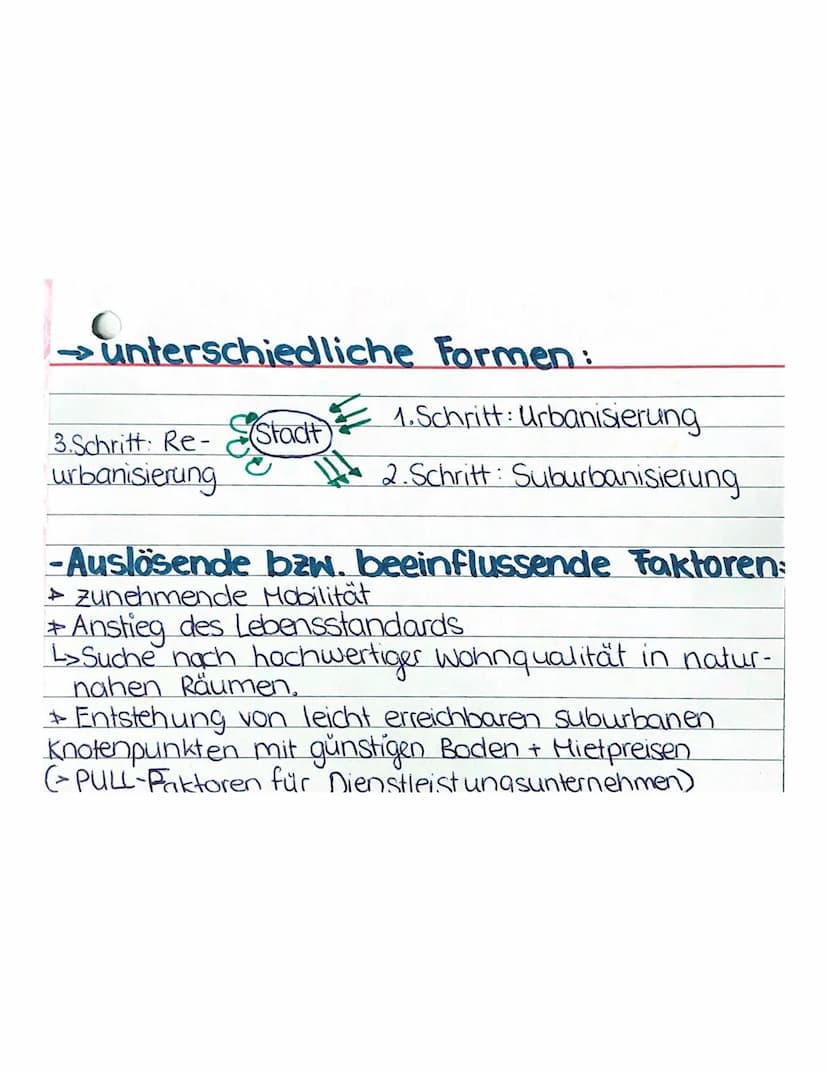 → unterschiedliche Formen:
1. Schritt: Urbanisierung
Stadt
3. Schritt: Re-
urbanisierung
2. Schritt: Suburbanisierung
- Auslösende bzw. beeinflussende Faktoren:
→ zunehmende Mobilität
→ Anstieg des Lebensstandards
↳ Suche nach hochwertiger Wohnqualität in natur-
nahen Räumen.
→ Entstehung von leicht erreichbaren suburbanen
Knotenpunkten mit günstigen Boden + Mietpreisen
(> PULL-Faktoren für Dienstleistungsunternehmen)